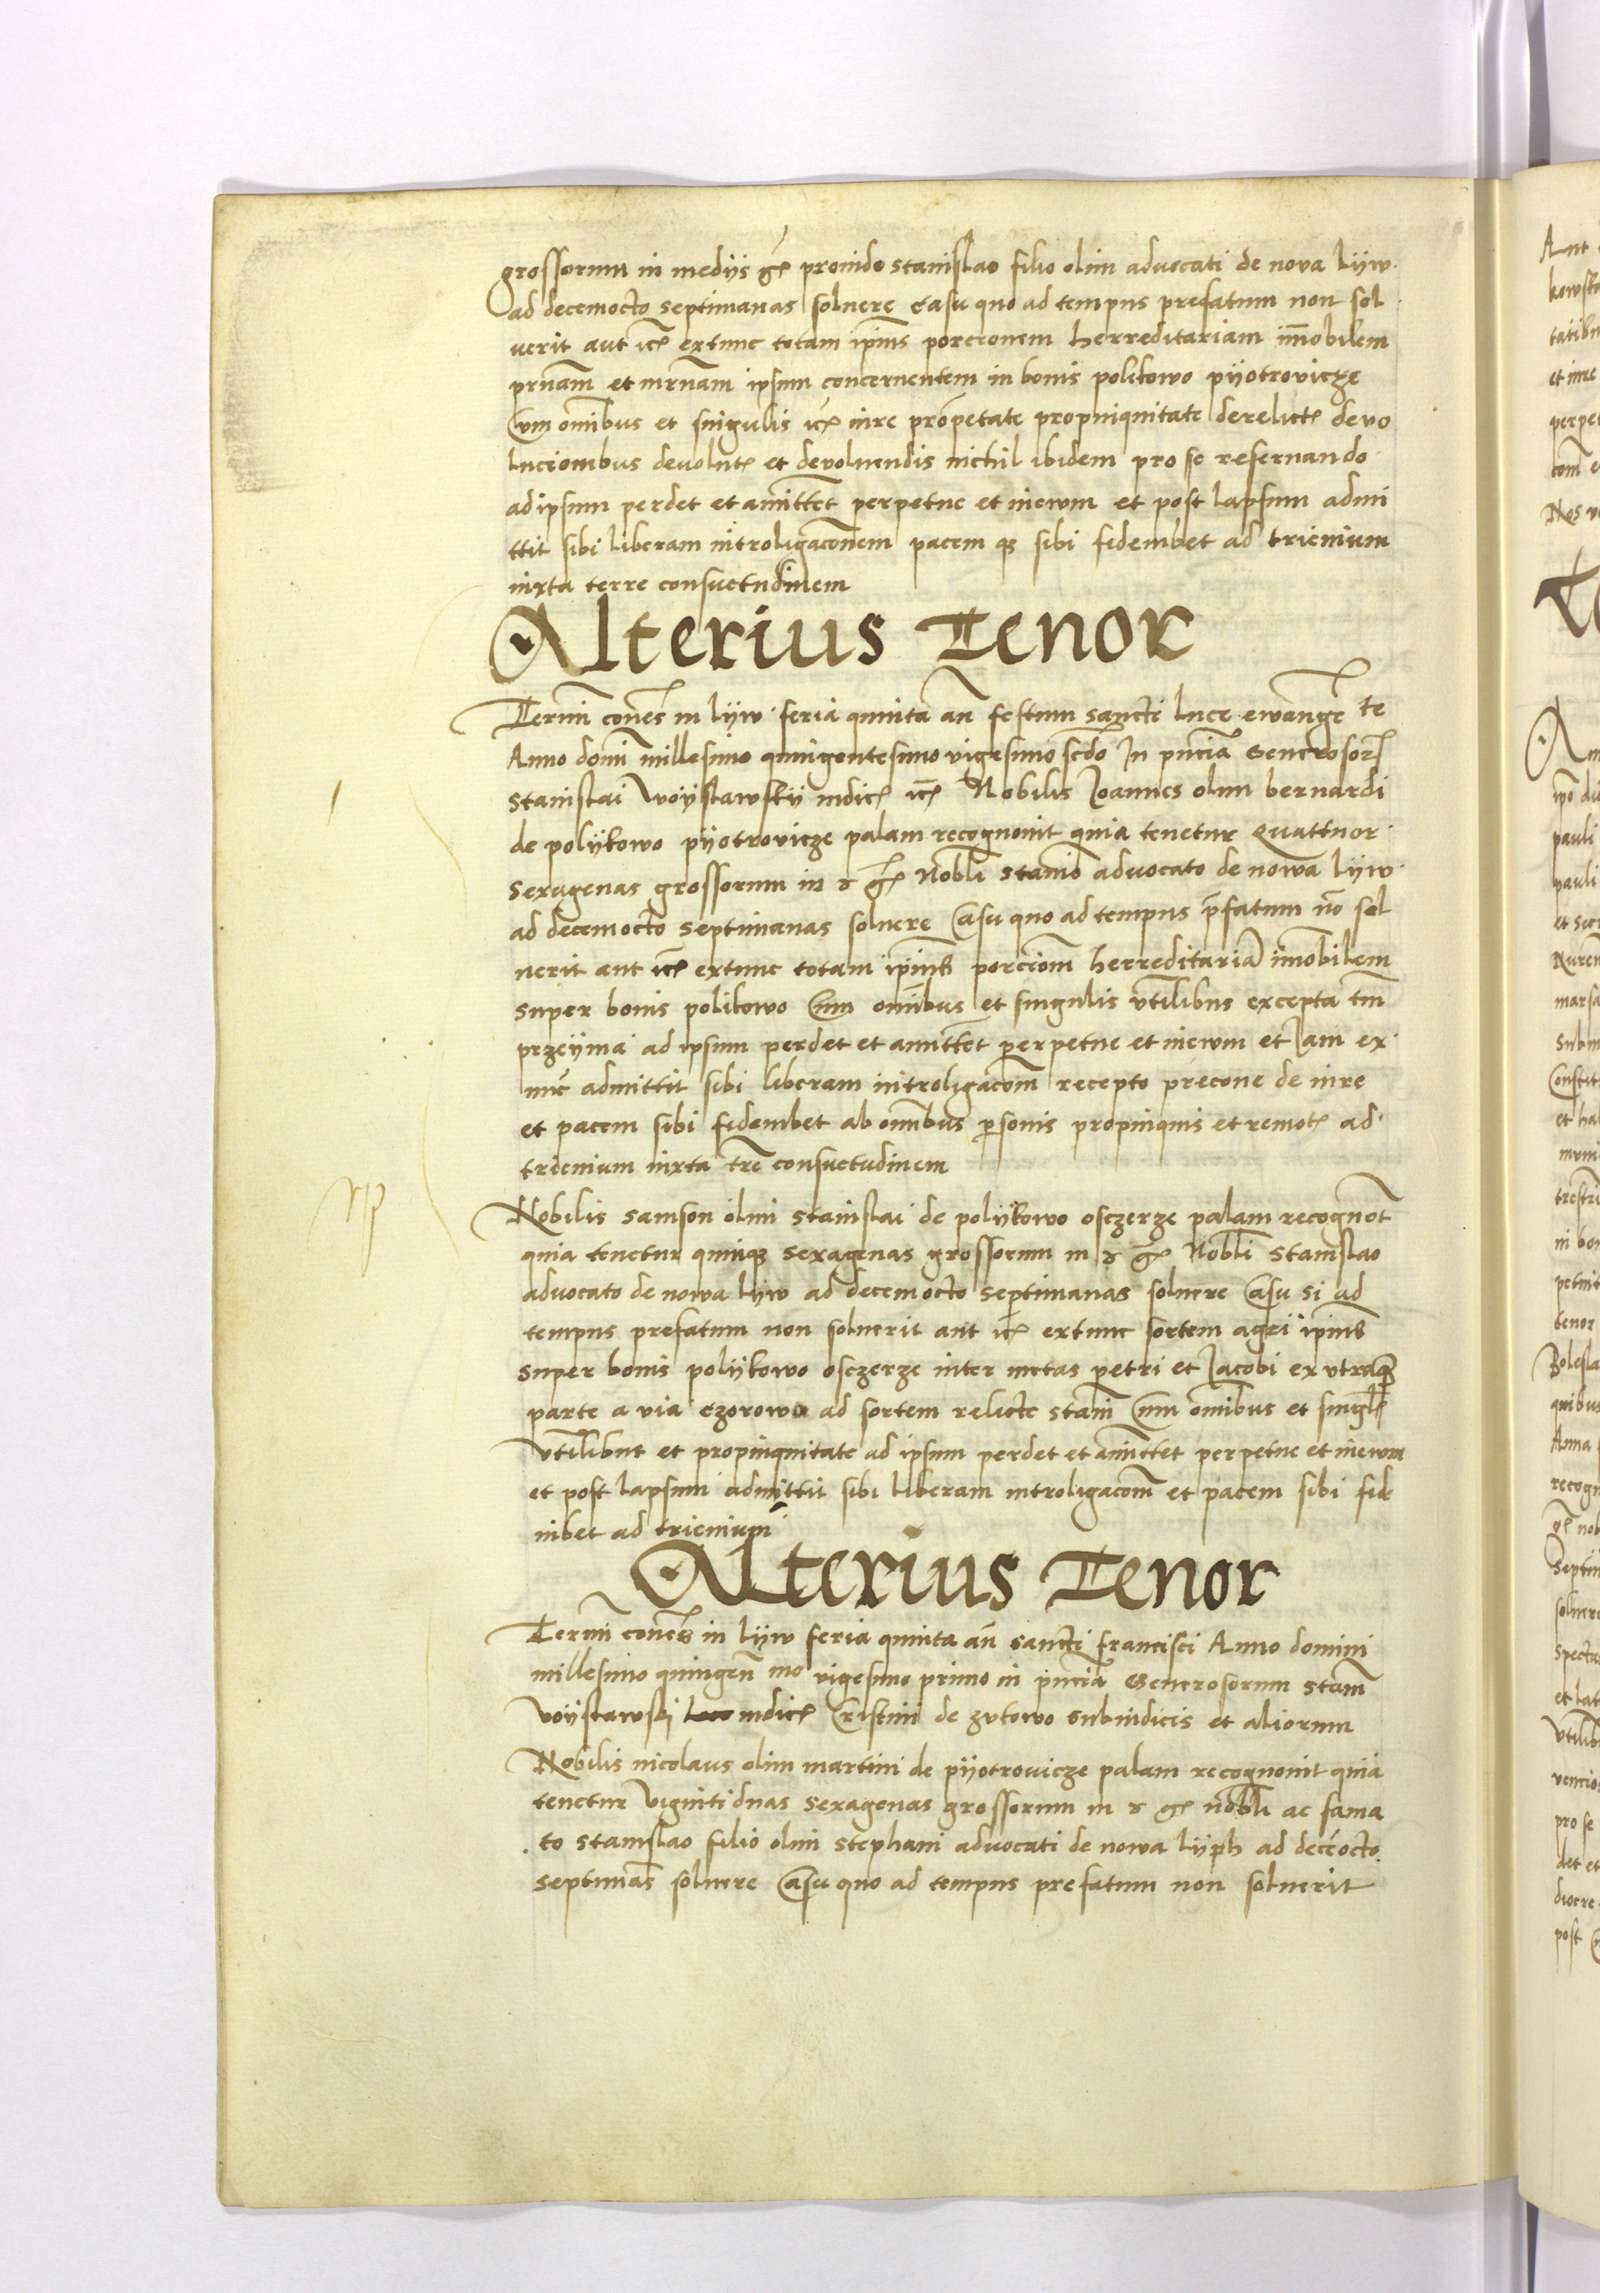 grossorum in medijs gr provido stanislao filio olim advocati de nova lijw
ad decemocto septimanas solvere casu quo ad tempus prefatum non sol
verit aut etc extunc totam ipius porcionem herreditariam immobilem
prnam et mrnam ipsum concernentem in bonis polikowo pijotrovicze
Cum omibus et singulis etc iure propetate propinquitate derelict devo
lucionibus devolut et devoluendis nichil ibidem pro se reservando
ad ipsum perdet et amittet perpetue et inewm et post lapsum admi
ttit sibi liberam introligaconem pacem q sibi fideiubet ad trienium
iuxta terre consuetudinem
Alterius Tenor
Termi cones in lijw feria quinta an festum sancti luce ewange te
Anno domi millesimo quingentesimo vigesimo scdo In pncia Generosor
stanislai voijslawskij iudic etc Nobilis Joannes olim bernardi
de polijkowo pijotrovicze palam recognovit quia tenetur quattuor
sexagenas grossorum in s gr Nobli stanio advocato de nowa lijw
ad decemocto septimanas solvere Casu quo ad tempus pfatum no sol
verit aut etc extunc totam ipius porciom herreditaria imobilem
super bonis polikowo Cum omibus et singulis vtilibus excepta tm
przeijma ad ipsum perdet et amittet perpetue et inewm et Jam ex
nuc admittit sibi liberam introligacom recepto precone de iure
et pacem sibi fideiubet ab omibus psonis propinquis et remot ad
trienium iuxta tre consuetudinem
Nobilis samson olim stanislai de polijkowo osczerze palam recognot
quia tenetur quinq sexagenas grossorum in s gr Nobli stanislao
advocato de nowa lijw ad decemocto septimanas solvere Casu si ad
tempus prefatum non solverit aut etc extunc sortem agri ipius
super bonis polijkowo osczerze inter metas petri et Jacobi ex vtraq
parte a via ezorowa ad sortem relicte stani Cum omibus et singl
vtilibus et propinquitate ad ipsum perdet et amittet perpetue et inewm
et post lapsum admittit sibi liberam introligacom et pacem sibi fide
iubet ad trienium
Alterius Tenor
Termi cones in lijw feria quinta an sancti francisci Anno domini
millesimo quingen mo vigesimo primo in pncia Generosorum stam
voijslawskj iudic Cristini de zvkowo subiudicis et aliorum
Nobilis nicolaus olim martini de pijotrovicze palam recognovit quia
tenetur viginti duas sexagenas grossorum in s gr nobli ac fama
to stanislao filio olim stephani advocati de nowa lijph ad deceocto
septimas solvere Casu quo ad tempus prefatum non solverit